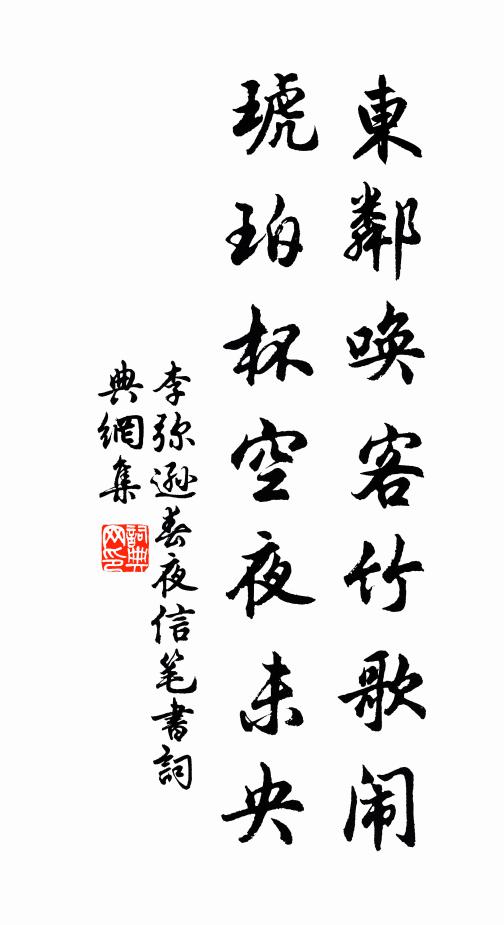 東鄰喚客竹歌闹
琥珀杯空夜未央
李弥遜春夜信笔書詞
典網集
詞典
网印